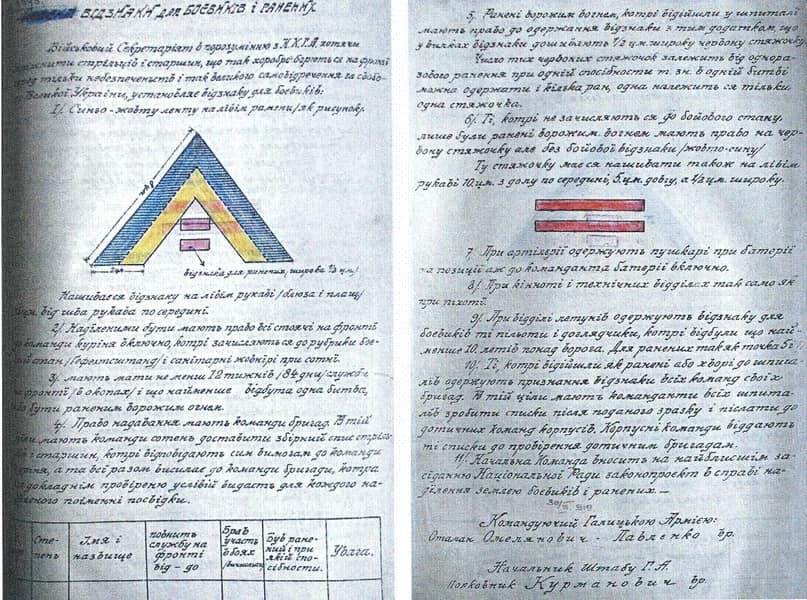 ВІДЗНАКИ ДЛЯ БОЄВИКІВ І РАНЕНИХ.
Військовий Секретаріят в порозумінню з Н.К.Г.А. хотячи
стрільців і старшин, що так хоробро борються на фронті
серед тільки небезпеченств і так великого самовідречення за свобо-
Великої України, установляє відзнаку для боєвиків:
1/. Синьо-жовту ленту на лівім рамени /як рисунок/.
8 цм.
2 цм
відзнака для ранених, широка ½ цм/
Нашивається відзнаку на лівім рукаві /блюза і плащ/
цм. від шва рукава по середині.
2/ Наділеними бути мають право всі стоячі на фронті
команди куріня включно, котрі зачисляються до рубрики бое-
вий стан /Гефехтсштанд/ і санітарні жовнірі при сотні.
3/. мають мати не менш 12 тижнів /84 дни/ служби
на фронті /в окопах/ і що найменше відбута одна битва,
або бути раненим ворожим огнем.
4/. Право надавання мають команди бригад. В тій
ціли мають команди сотень доставити збірний спис стріль-
ців і старшин, котрі відповідають сим вимогам до команди
куріня, а та всі разом висилає до команди бригади, котра
по докладнім провіренню условій видасть для кожного на-
діленого поіменні посвідки.
Сте-
пень
Імя і
назвище
повнить
службу на
фронті
від - до
Брав
участь
в боях
Був ране-
ний і при
якій спо-
сібности.
Увага.
5. Ранені ворожим вогнем, котрі відійшли у шпиталі
мають право до одержання відзнаки з тим додатком що
у виїмках відзнаки дошивають ½ цм. широку червону стяжочку.
Число тих червоних стяжочок залежить від однора-
зового ранення при одній спосібности т. зн. в одній битві
можна одержати і кілька ран, одна належить ся тільки
одна стяжочка.
6/. Ті, котрі не зачисляють ся до бойового стану,
лише були ранені ворожим вогнем мають право на чер-
вону стяжочку але без бойової відзнаки /жовто-сину/
Ту стяжочку мається нашивати також на лівім
рукаві 10.цм. з долу по середині, 5.цм. довгу, а ½ цм. широку.
7. При артілєрії одержують пушкарі при батерії
на позиції аж до команданта батерії включно.
8/. При кінноті і технічних відділах так само як
при піхоті.
9/. При відділі летунів одержують відзнаку для
боєвиків ті пільоти і доглядчики, котрі відбули що най-
менше 10. летів понад ворога. Для ранених так як точка 5 і
10/. Ті, котрі відійшли як ранені або хворі до шпита-
лів одержують признання відзнаки всіх команд своїх
бригад. В тій ціли мають команданти всіх шпита-
лів зробити списки після поданого зразку і післати до
дотичних команд корпусів. Корпусні команди віддають
ті списки до провірення дотичним бригадам.
11/. Начальна Команда вносить на найблизшім за-
сіданню Національної Ради законопроєкт в справі на-
ділення землею боєвиків і ранених —
Командуючий Галицькою Армією:
Отаман Омелянович - Павленко вр.
Начальник Штабу Г. А.
Полковник Курманович вр.